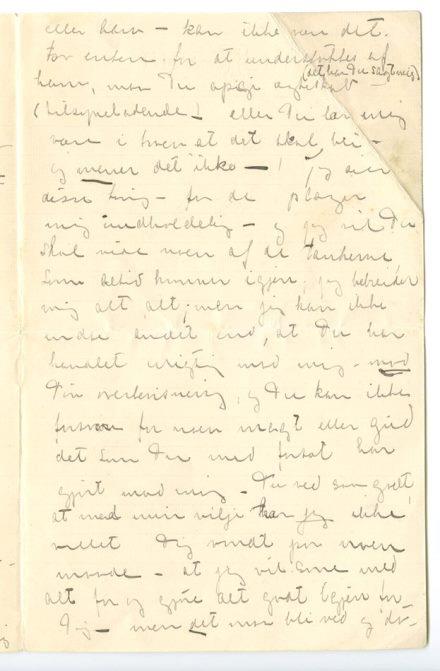 eller ham – kan ikke være det.
For enten for at understøttes af
(det har Du sagt meg)
ham, maa Du opgi ægteskab
(tilsyneladende) – eller Du lar mig
være i troen at det skal bli –
og mener det ikke – ! Jeg sier
disse ting – for de plager
mig uudholdelig – og jeg vil Du
skal vide noen af de tankerne
som altid kommer igjen; jeg bebreider
mig alt, alt; men jeg kan ikke
indse andet end, at Du har
handlet urigtig mod mig – mod
Din overbevisning, og Du kan ikke
forsvare for noen magt eller gud
det som Du med forsæt har
gjort mod mig – Du ved saa godt,
at med min vilje har jeg ikke
villet Dig vondt paa noen
maade – at jeg vil sone med
alt for og gjøre alt godt igjen for
Dig – men det maa bli ved og dø-